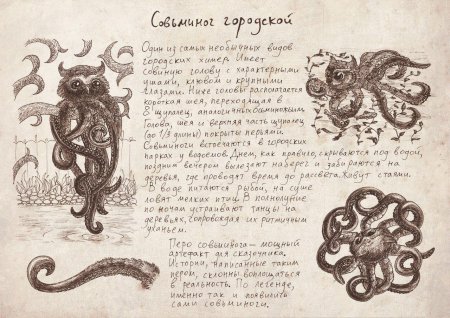 Совьминог городской
Один из самых необычных видов
городских химер. Имеет
совиную голову с характерными
ушами, клювом и крупными
глазами. Ниже головы располагается
короткая шея, переходящая в
8 щупалец, аналогичных осьминожьим.
Голова, шея и верхняя часть щупалец
(до 1/3 длины) покрыты перьями.
Совьминоги встречаются в городских
парках у водоемов. Днем, как правило, скрываются под водой,
поздним вечером вылезают на берег и забираются на
деревья, где проводят время до рассвета. Живут стаями.
В воде питаются рыбой, на суше
ловят мелких птиц. В полнолуние
по ночам устраивают танцы на
деревьях, сопровождая их ритмичным
уханьем.
Перо совьминога – мощный
артефакт для сказочника.
Истории, написанные таким
пером, склонны воплощаться
в реальность. По легенде,
именно так и появились
сами совьминоги.